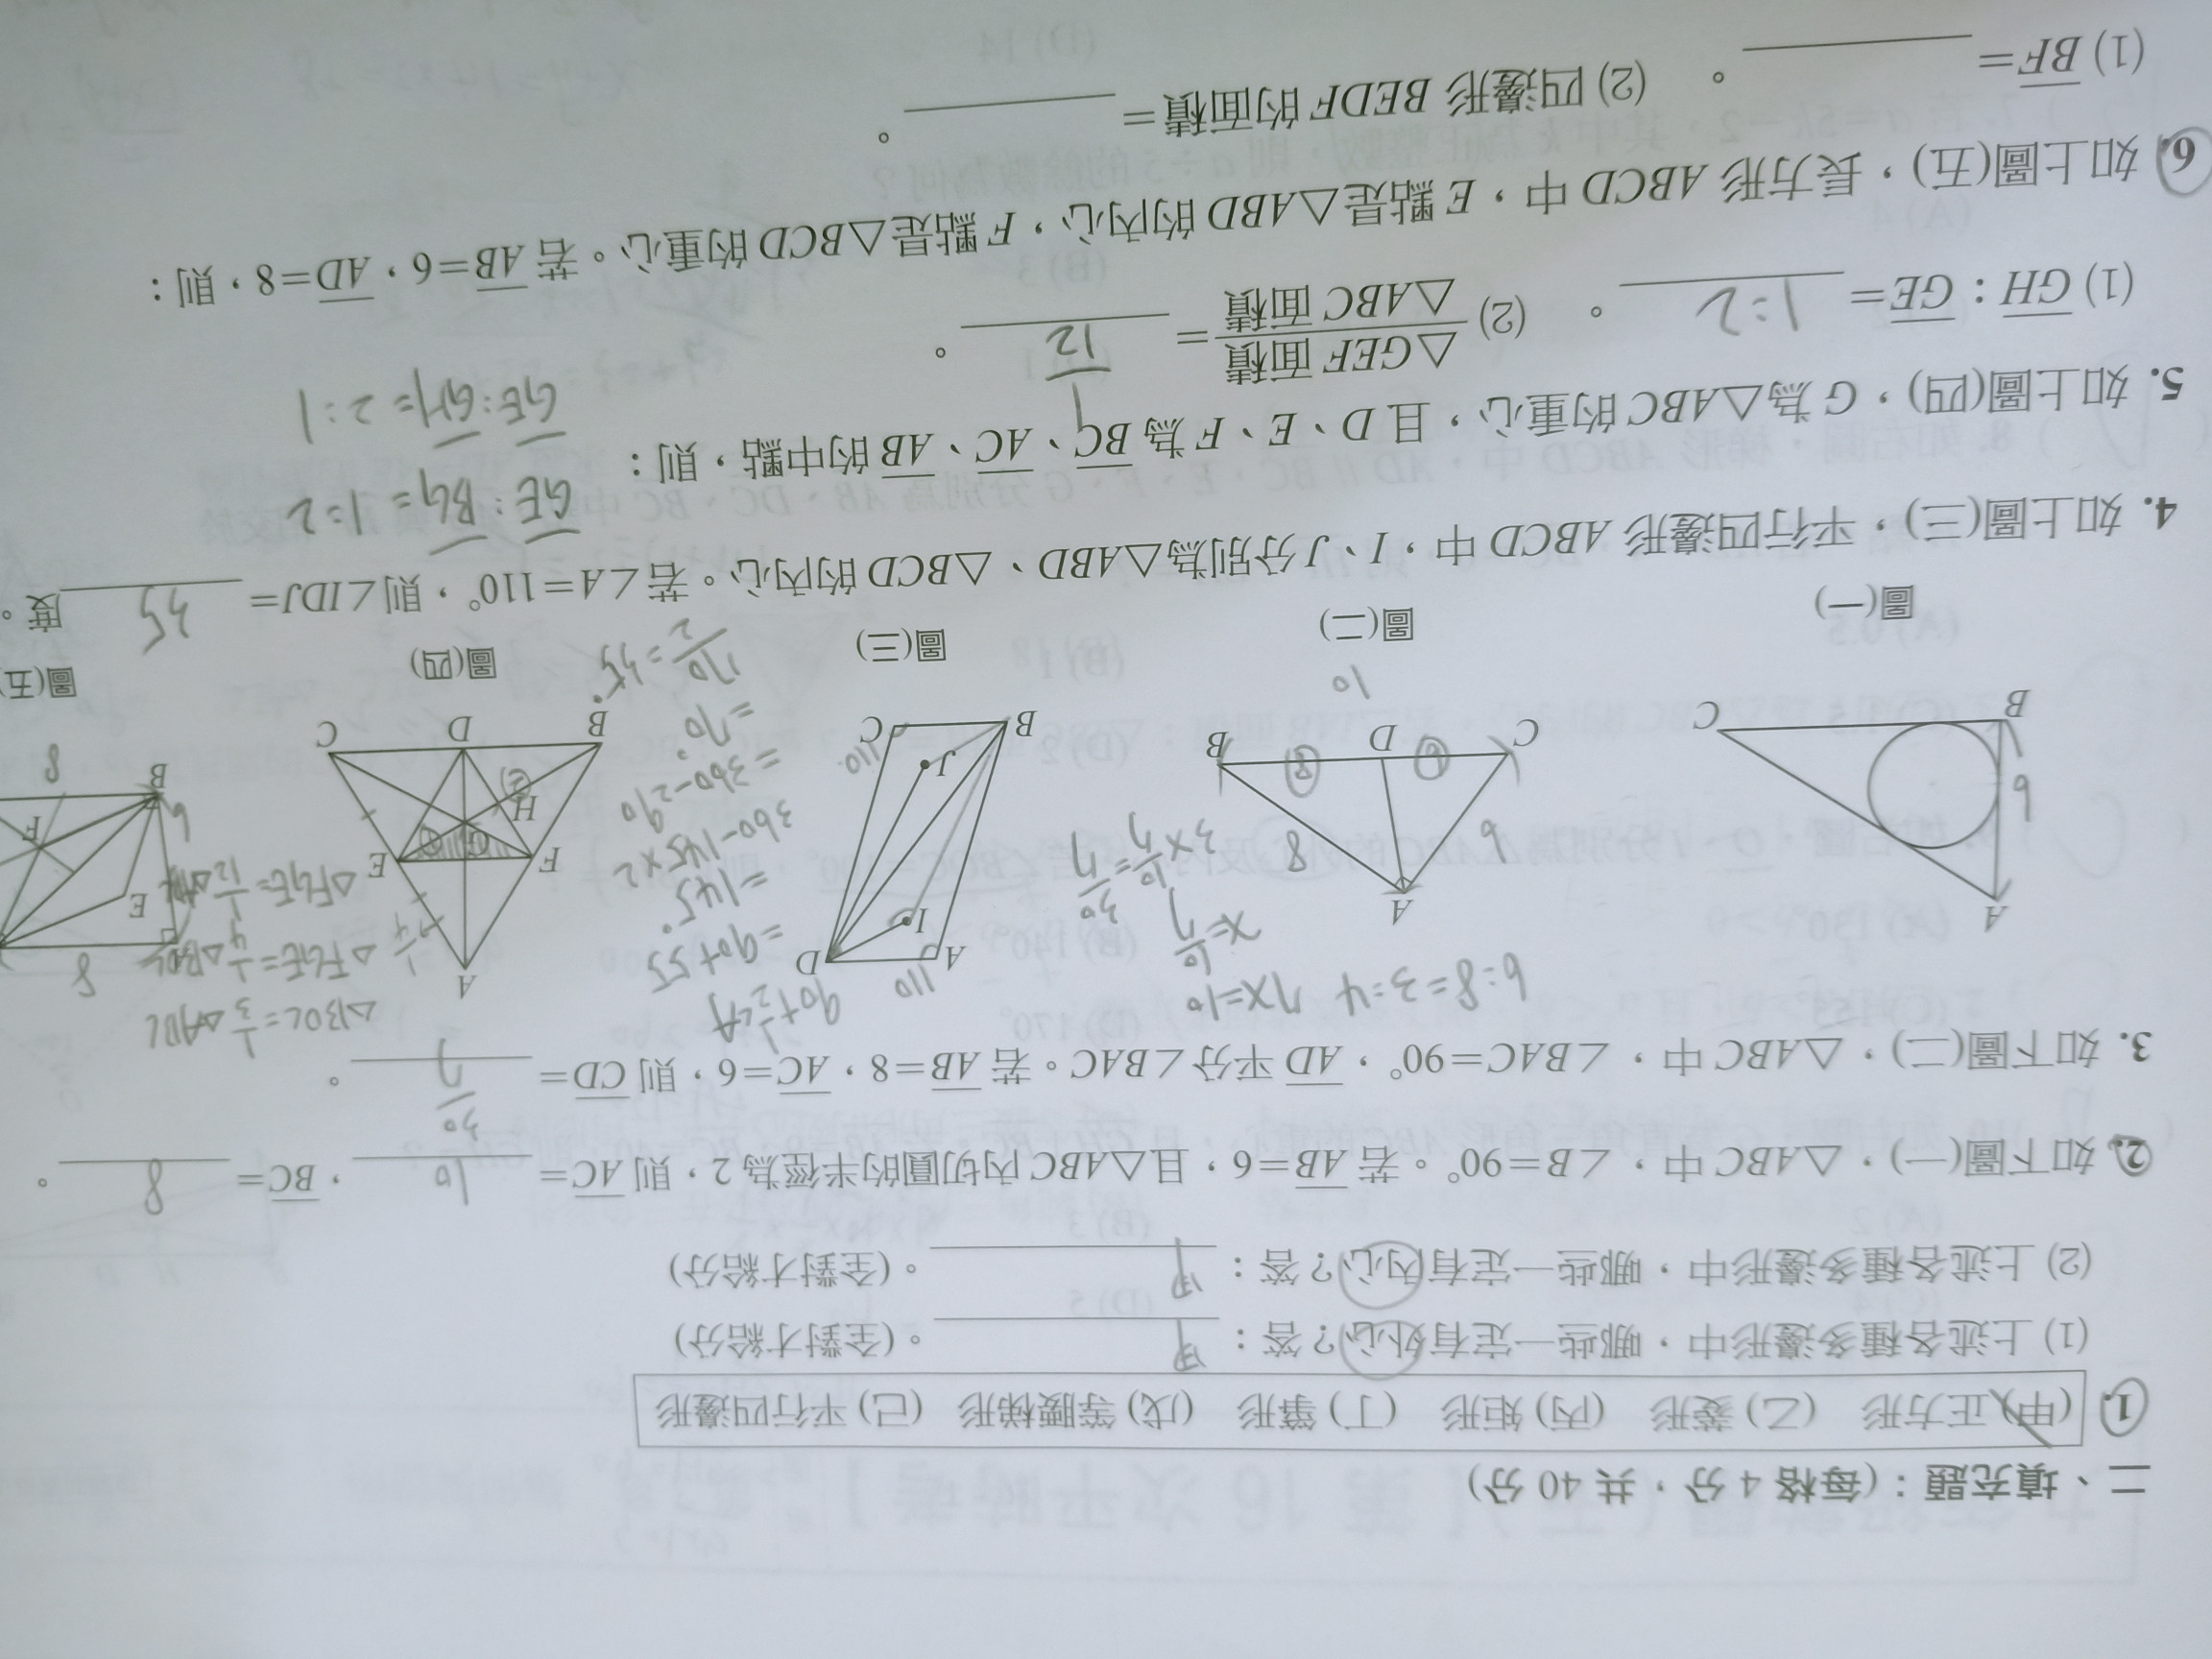 二、填充題：(每格 4 分，共 40 分)
1. (甲) 正方形 (乙) 菱形 (丙) 矩形 (丁) 箏形 (戊) 等腰梯形 (己) 平行四邊形
(1) 上述各種多邊形中，哪些一定有外心？答： 甲 。(全對才給分)
(2) 上述各種多邊形中，哪些一定有內心？答： 甲 。(全對才給分)
2. 如下圖(一)，△ABC 中，∠B=90°。若 AB=6，且△ABC 內切圓的半徑為 2，則 AC= 10 ，BC= 8 。
3. 如下圖(二)，△ABC 中，∠BAC=90°，AD 平分∠BAC。若 AB=8，AC=6，則 CD= 30/7 。
6:8=3:4 7x=10
x=10/7
3×10/7=30/7
90+½∠A
=90+55
=145°
360-145×2
=360-290
=70°
70/2=35°
△BGC=1/3△ABC
△FGE=1/4△BGC
△FGE=1/12△ABC
A
B
C
6
圖(一)
A
6
8
C
6
D
8
B
10
圖(二)
110
A
D
I
J
B
C
110
圖(三)
A
F
E
G
H
B
D
C
圖(四)
8
E
F
6
B
8
圖(五)
4. 如上圖(三)，平行四邊形 ABCD 中，I、J 分別為△ABD、△BCD 的內心。若∠A=110°，則∠IDJ= 35 度。
5. 如上圖(四)，G 為△ABC 的重心，且 D、E、F 為 BC、AC、AB 的中點，則：
GE:BG=1:2
GE:GH=2:1
(1) GH：GE= 1:2 。 (2) △GEF 面積/△ABC 面積= 1/12 。
6. 如上圖(五)，長方形 ABCD 中，E 點是△ABD 的內心，F 點是△BCD 的重心。若 AB=6，AD=8，則：
(1) BF= 。 (2) 四邊形 BEDF 的面積= 。